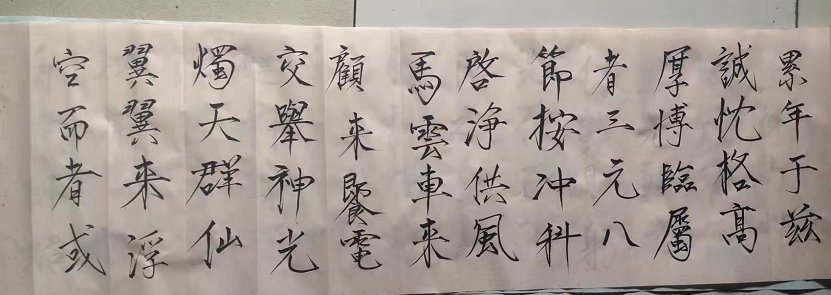 累年于茲
誠忱格高
厚博臨屬
者三元八
節按冲科
啓淨供風
馬雲車来
顧来饗電
交舉神光
燭天群仙
翼翼来浮
空而者或